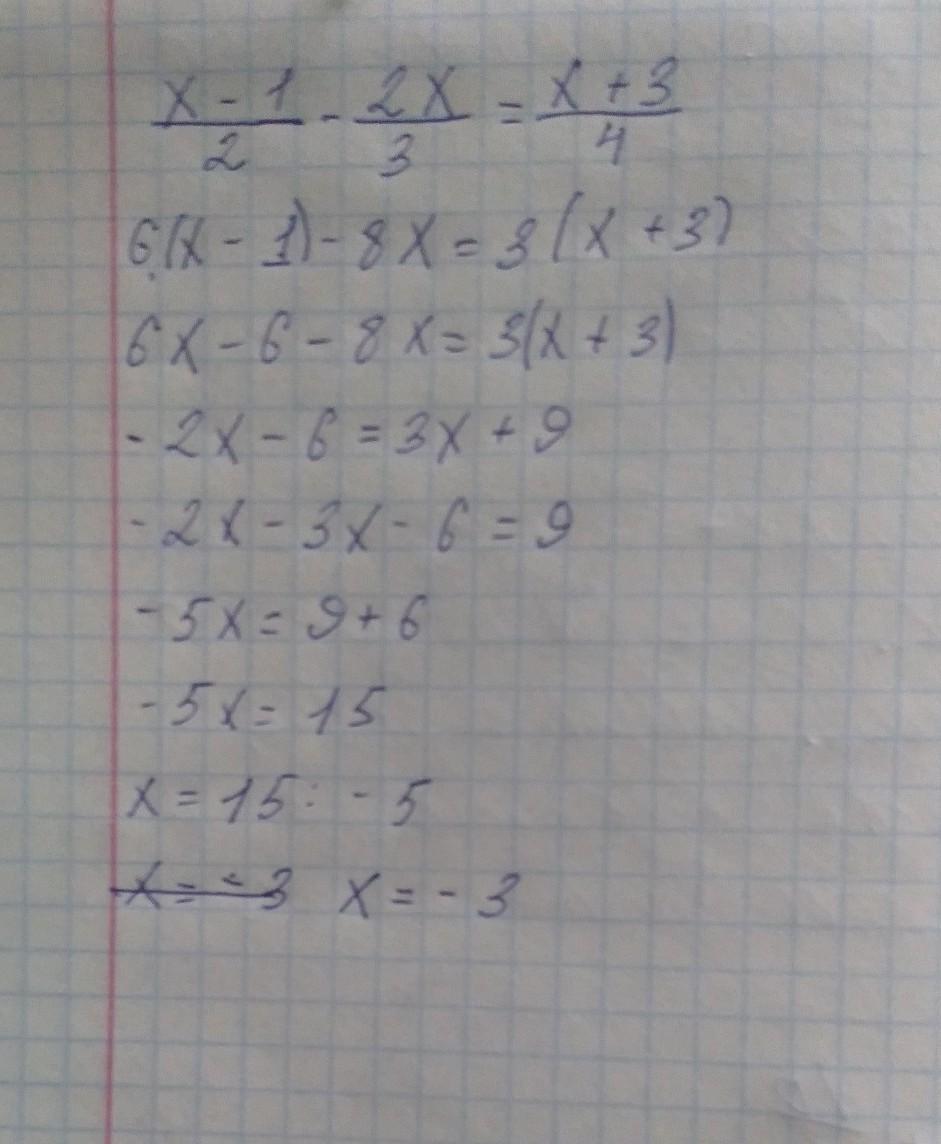 x - 1 / 2 - 2x / 3 = x + 3 / 4
6(x - 1) - 8x = 3(x + 3)
6x - 6 - 8x = 3(x + 3)
- 2x - 6 = 3x + 9
- 2x - 3x - 6 = 9
- 5x = 9 + 6
- 5x = 15
x = 15 : - 5
x = - 3 x = - 3